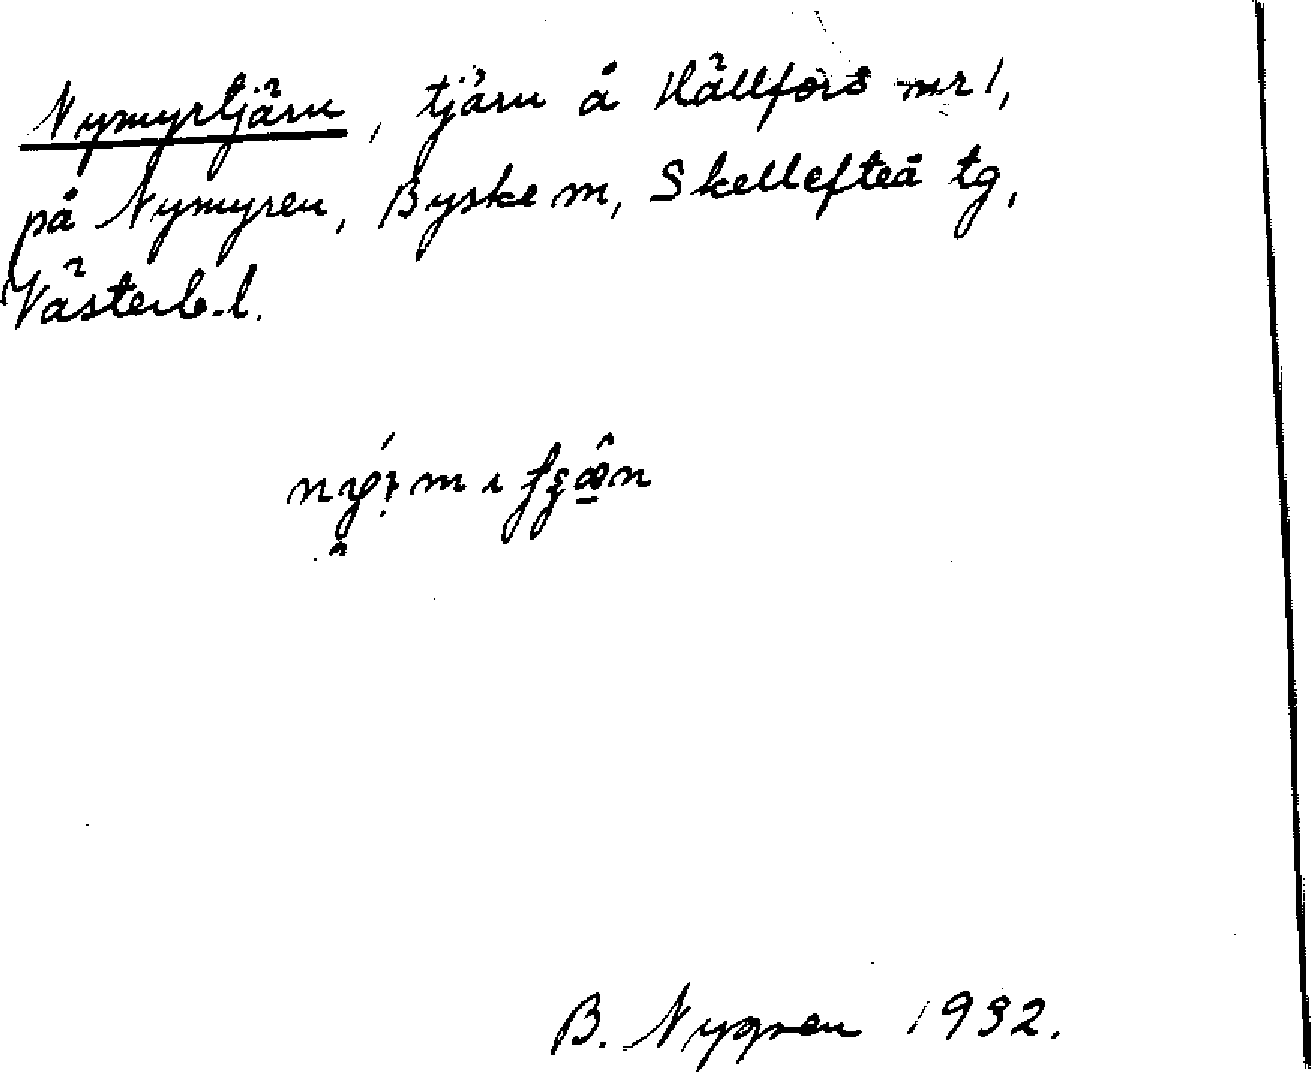 Nymyrtjärn, tjärn å Hällfors nr 1,
på Nymyren, Byske m, Skellefteå tg,
Västerb. l.
B. Nygren 1932.